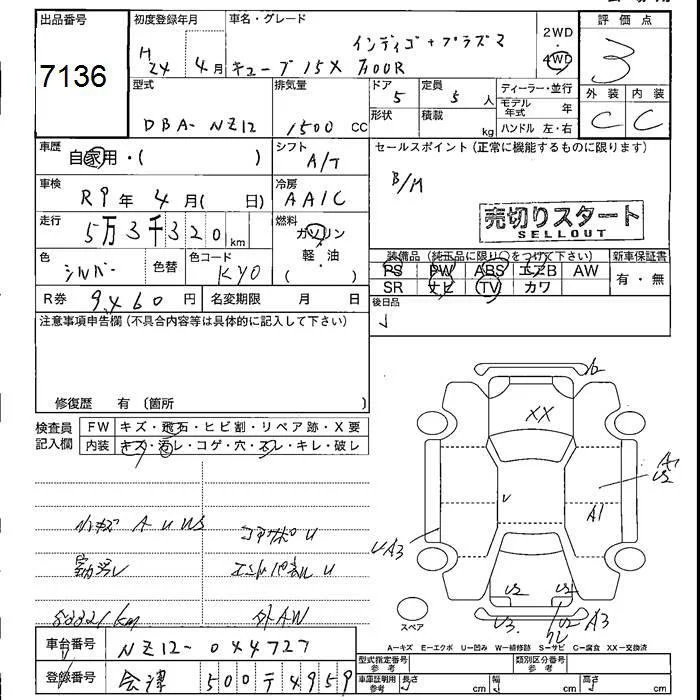 出品番号
7136
初度登録年月
H24 4月
車名・グレード
インディゴ+プラズマ
キューブ 15X
2WD
・
4WD
評価点
3
外装 内装
C C
型式
DBA-NZ12
排気量
1500 cc
ドア
5
形状
定員
5 人
積載
kg
ディーラー・並行
モデル年式 年
ハンドル 左・右
車歴
自家用・( )
シフト
A/T
セールスポイント(正常に機能するものに限ります)
B/M
売切りスタート
SELLOUT
車検
R9年 4月( 日)
冷房
AAC
走行
5万3千320km
燃料
ガソリン
軽・油
( )
色
シルバー
色替
色コード
KY0
装備品(純正品に限り○をつけて下さい)
PS PW ABS エアB AW
SR ナビ TV カワ
新車保証書
有・無
R券 9,460円
名変期限 月 日
後日品
注意事項申告欄(不具合内容等は具体的に記入して下さい)
修復歴 有〔箇所 〕
検査員記入欄
FW キズ・飛石・ヒビ割・リペア跡・X要
内装 キズ・汚レ・コゲ・穴・スレ・キレ・破レ
小キズ A U WS
コアサポ U
室内汚レ
エンドパネル U
53321km
外AW
XX
A1
U2
A3
U2
U2
U3
U2
A3
スペア
A-キズ E-エクボ U-凹み W-補修跡 S-サビ C-腐食 XX-交換済
車台番号
NZ12-044727
登録番号
会津 500 テ 4959
型式指定番号
参考
類別区分番号
参考
車庫証明用
参考
長さ cm
幅 cm
高さ cm